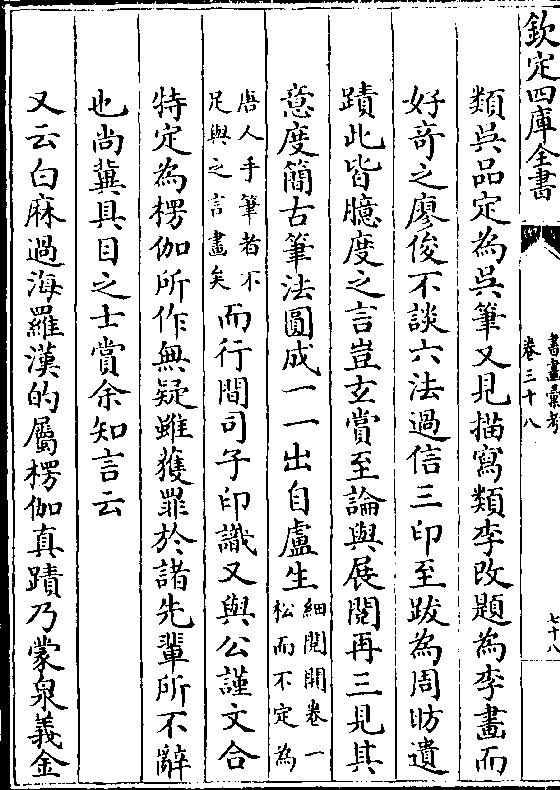 欽定四庫全書
書畫彙考
卷三十八
七十八
類吳品定為吳筆又見描寫類李改題為李畫而
好竒之廖俊不談六法過信三印至跋為周昉遺
蹟此皆臆度之言豈玄賞至論與展閱再三見其
意度簡古筆法圓成一一出自盧生細閱開卷一松而不定為
唐人手筆者不足與之言畫矣而行間司子印識又與公謹文合
特定為楞伽所作無疑雖獲罪於諸先輩所不辭
也尚冀具目之士賞余知言云
又云白麻過海羅漢的屬楞伽真蹟乃蒙泉義金